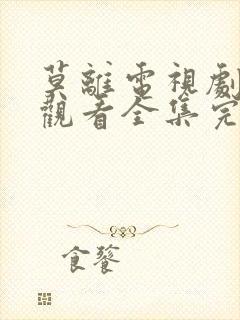 莫離電視劇
觀看全集完
食饕